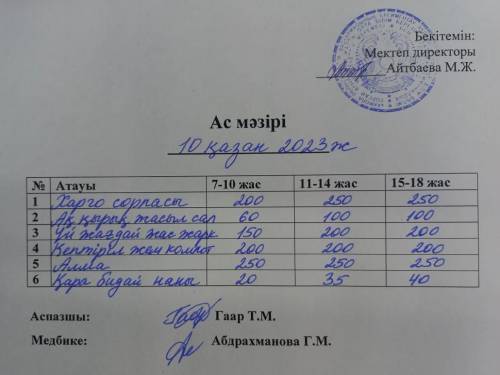 Бекітемін:
Мектеп директоры
Айтбаева М.Ж.
Ас мәзірі
10 қазан 2023ж
№ Атауы 7-10 жас 11-14 жас 15-18 жас
1 Харчо сорпасы 200 250 250
2 Ақ қырық жасыл сал 60 100 100
3 Үй жағдай жас жарк 150 200 200
4 Кептіріл жем компот 200 200 200
5 Алма 250 250 250
6 Қара бидай наны 20 35 40
Аспазшы: Гаар Т.М.
Медбике: Абдрахманова Г.М.